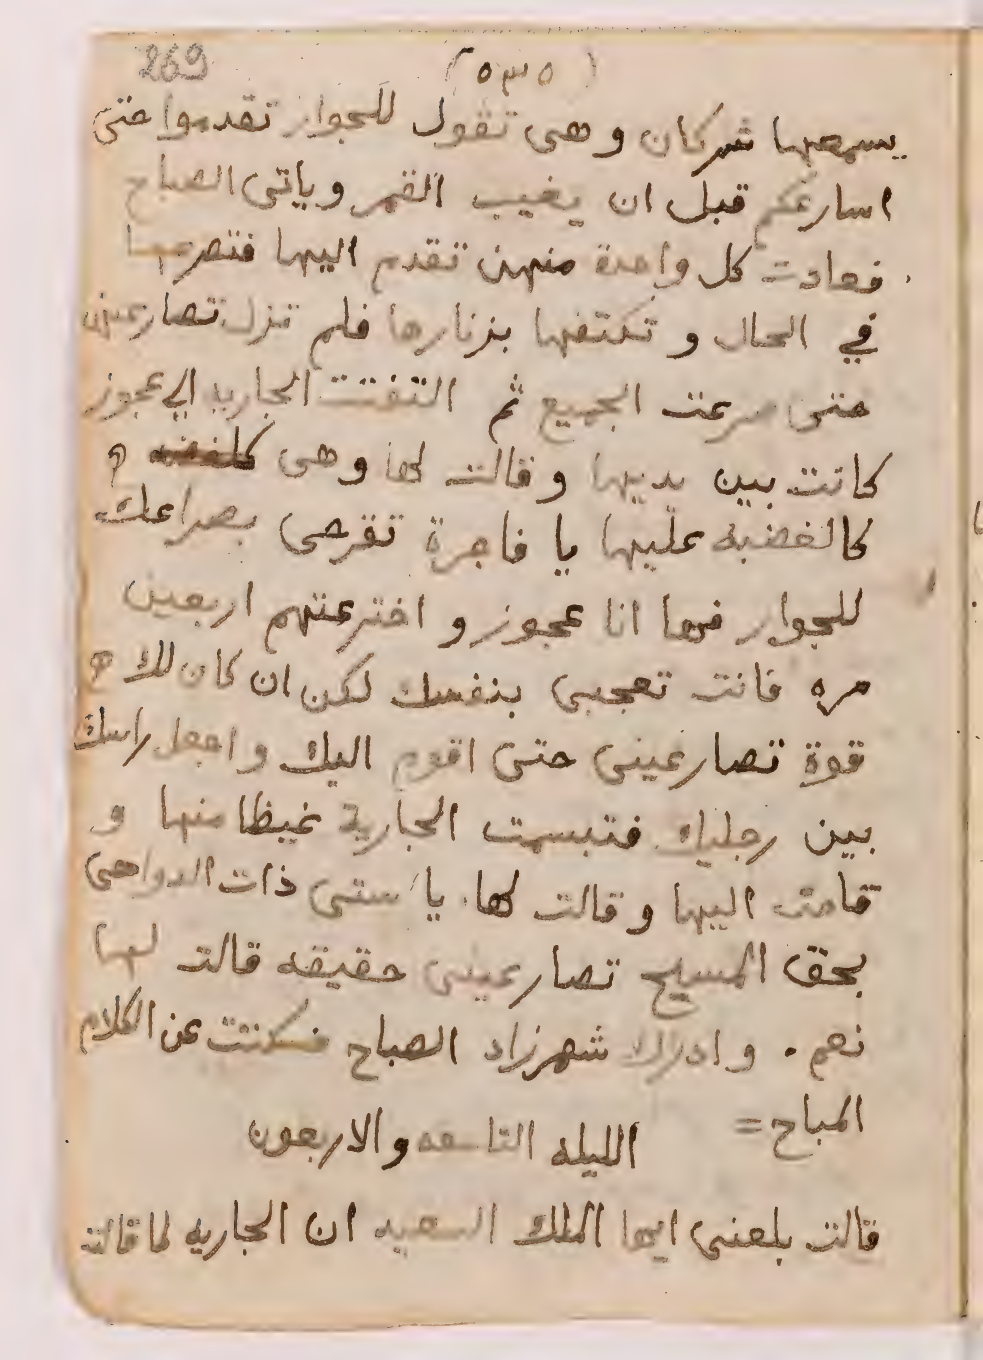 269
(٥٣٥)
يسمعها شركان وهى تقول للجوار تقدموا حتى
اسارعكم قبل ان يغيب القمر وياتى الصباح
فعادت كل واحدة منهن تقدم اليها فتصرعها
في الحال و تكتفها بزنارها فلم تزل تصارعهن
حتى سرعت الجميع ثم التفتت الجاريه الي عجوز
كانت بين يديها وقالت لها وهى
كالغضبه عليها يا فاجرة تفرحى بصراعك
للجوار فها انا عجوز و اخترعتهم اربعين
مره فانت تعجبى بنفسك لكن ان كان لك
قوة تصارعينى حتى اقوم اليك واجعل راسك
بين رجليك فتبسمت الجارية غيظا منها و
قامت اليها وقالت لها يا ستى ذات الدواهى
بحق المسيح تصارعينى حقيقه قالت لها
نعم . وادراك شهرزاد الصباح فسكتت عن الكلام
المباح =
الليله التاسعه والاربعون
قالت بلعنى ايها الملك السعيد ان الجاريه لما قالت